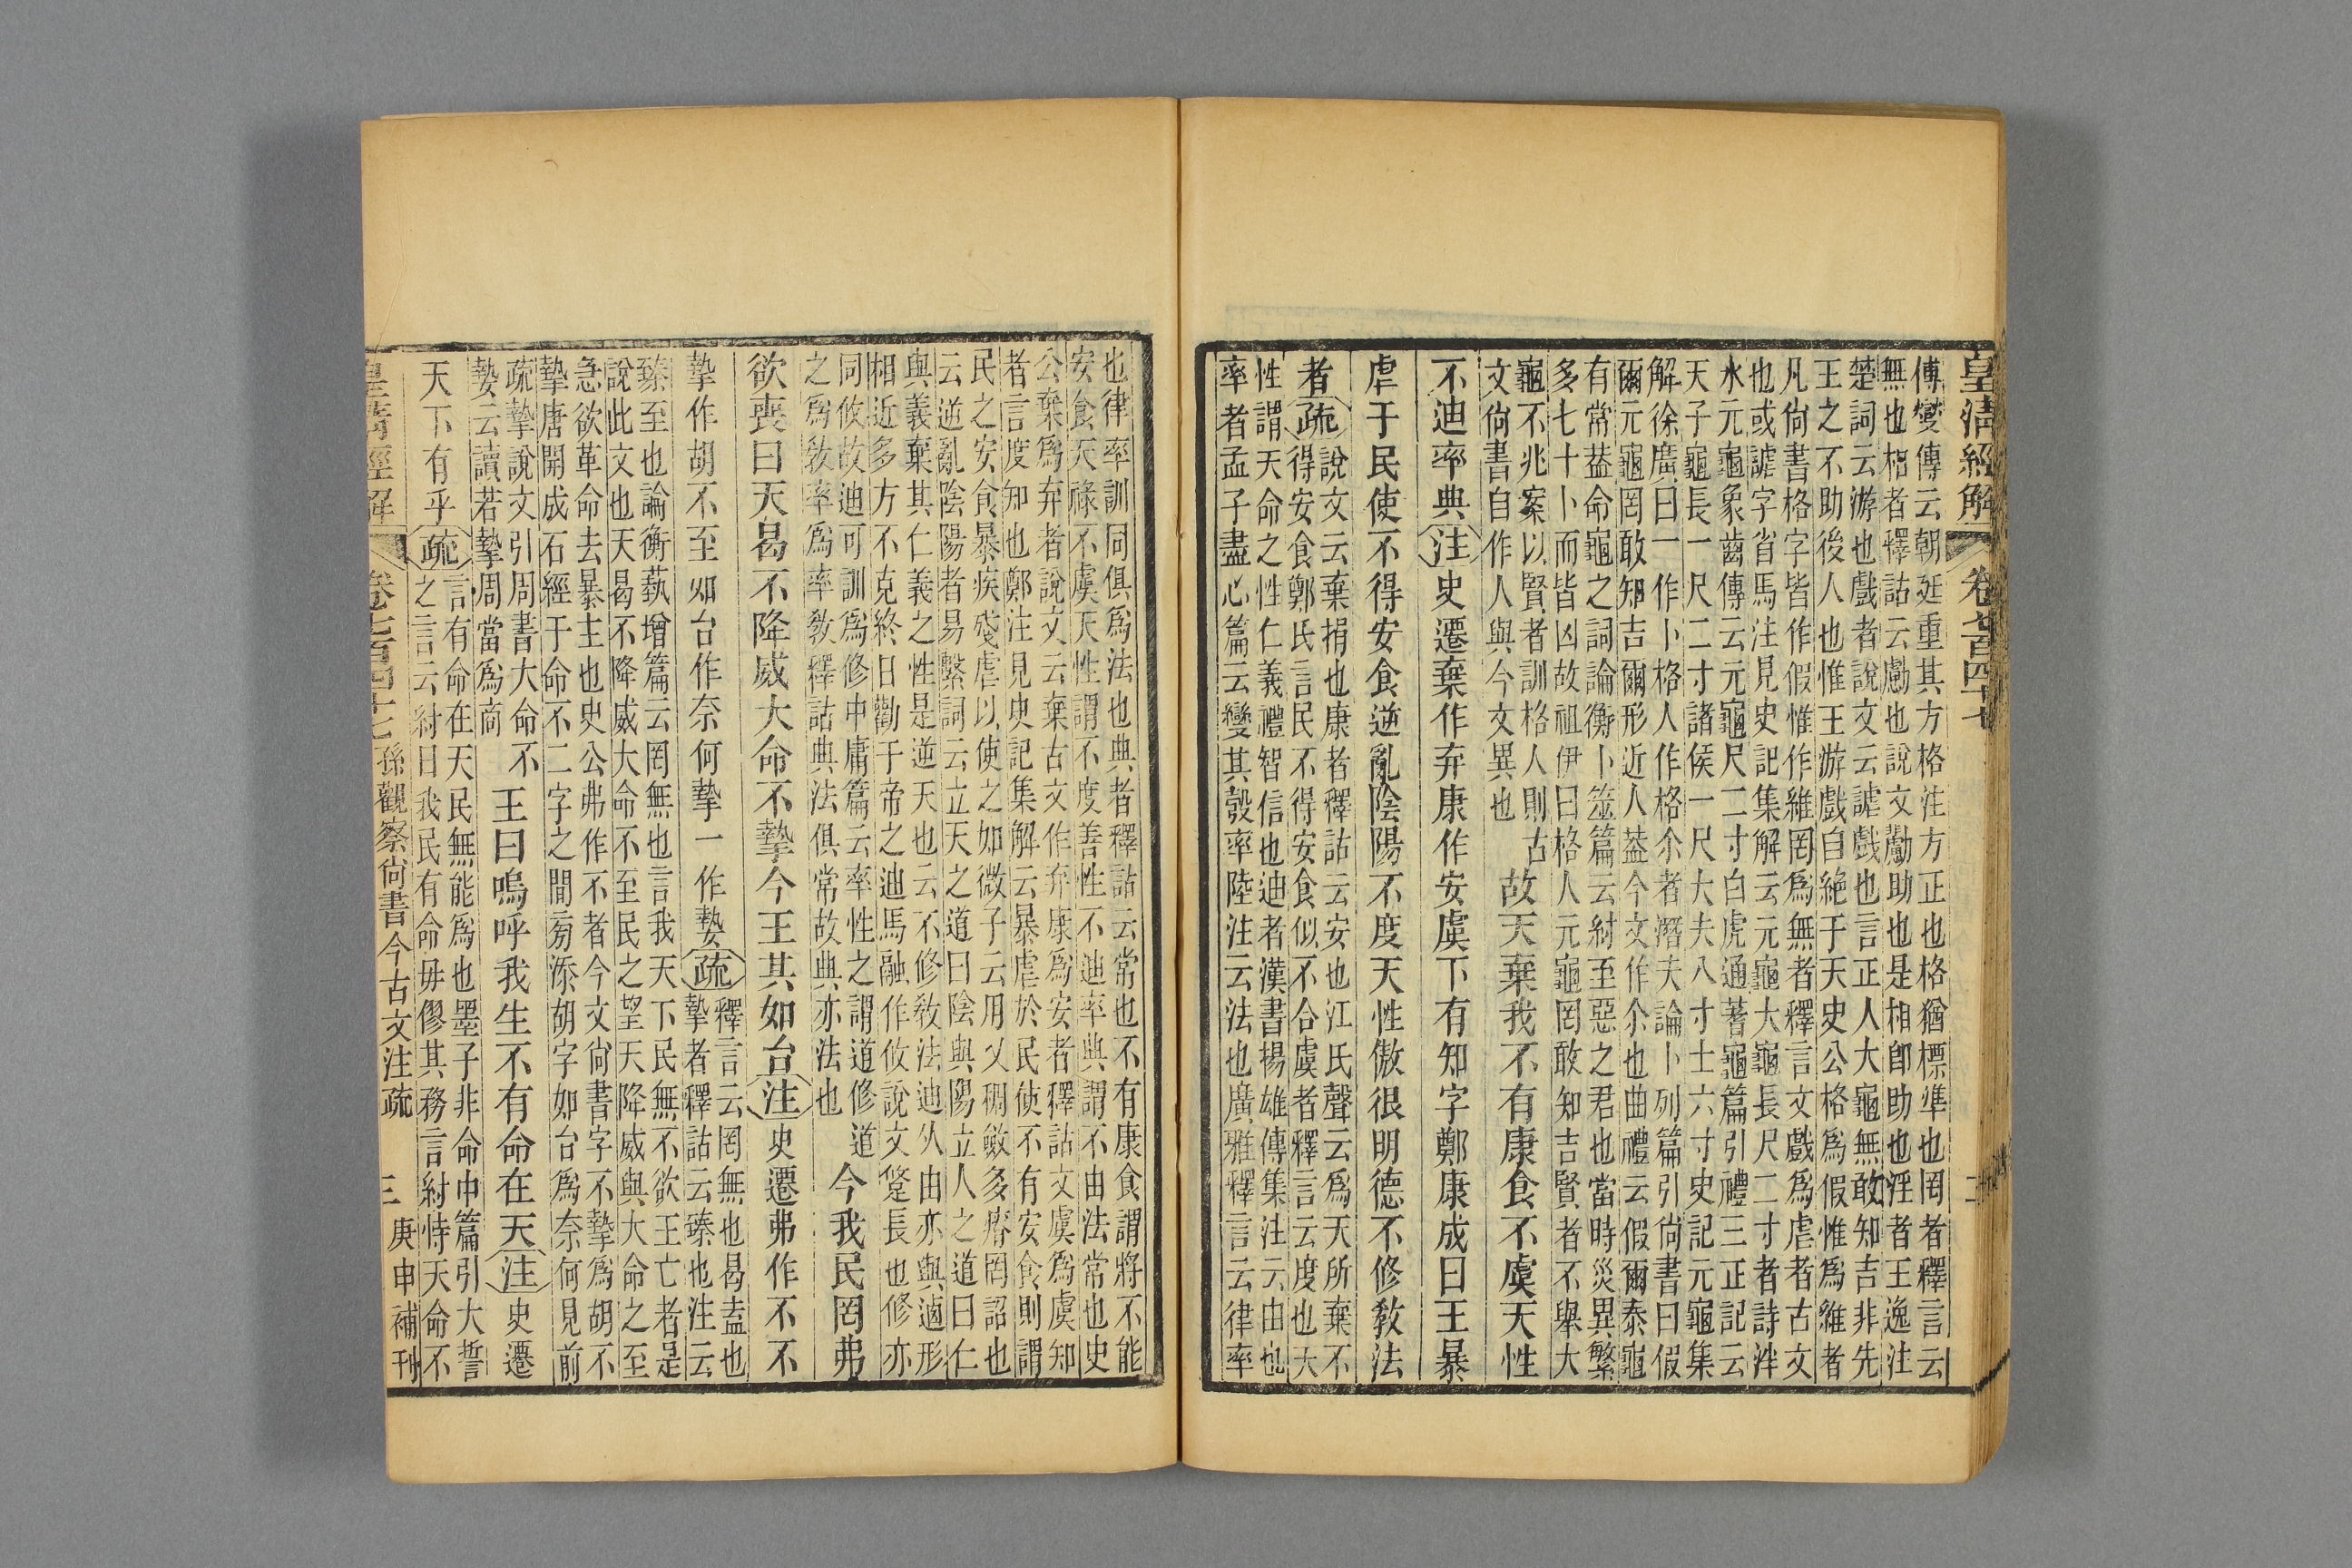 皇清經解 卷七百四十七 二
傅燮傳云朝廷重其方格注方正也格猶標準也罔者釋言云
無也相者釋詁云勴也說文勴助也是相卽助也淫者王逸注
楚詞云游也戲者說文云謔戲也言正人大龜無敢知吉非先
王之不助後人也惟王游戲自絕于天史公格爲假惟爲維者
凡尙書格字皆作假惟作維罔爲無者釋言文戲爲虐者古文
也或謔字省馬注見史記集解云元龜大龜長尺二寸者詩泮
水元龜象齒傳云元龜尺二寸白虎通蓍龜篇引禮三正記云
天子龜長一尺二寸諸侯一尺大夫八寸士六寸史記元龜集
解徐廣曰一作卜格人作格尒者潛夫論卜列篇引尙書曰假
爾元龜罔敢知吉爾形近人葢今文作尒也曲禮云假爾泰龜
有常葢命龜之詞論衡卜筮篇云紂至惡之君也當時災異繁
多七十卜而皆凶故祖伊曰格人元龜罔敢知吉賢者不舉大
龜不兆案以賢者訓格人則古
文尙書自作人與今文異也
故天棄我不有康食不虞天性
不迪率典注史遷棄作弃康作安虞下有知字鄭康成曰王暴
虐于民使不得安食逆亂陰陽不度天性傲很明德不修敎法
者疏說文云棄捐也康者釋詁云安也江氏聲云爲天所棄不
得安食鄭氏言民不得安食似不合虞者釋言云度也大
性謂天命之性仁義禮智信也迪者漢書揚雄傳集注云由也
率者孟子盡心篇云變其彀率陸注云法也廣雅釋言云律率
也律率訓同俱爲法也典者釋詁云常也不有康食謂將不能
安食天祿不虞天性謂不度善性不迪率典謂不由法常也史
公棄爲弃者說文云棄古文作弃康爲安者釋詁文虞爲虞知
者言度知也鄭注見史記集解云暴虐於民使不有安食則謂
民之安食暴疾殘虐以使之如微子云用乂稠斂多瘠罔詔也
云逆亂陰陽者易繫詞云立天之道曰陰與陽立人之道曰仁
與義棄其仁義之性是逆天也云不修敎法迪从由亦與適形
相近多方不克終日勸于帝之迪馬融作攸說文䇓長也修亦
同攸故迪可訓爲修中庸篇云率性之謂道修道
之爲敎率爲率敎釋詁典法俱常故典亦法也
今我民罔弗
欲喪曰天曷不降威大命不摯今王其如台注史遷弗作不不
摯作胡不至如台作奈何摯一作㙯疏釋言云罔無也曷盍也
摯者釋詁云臻也注云
臻至也論衡蓺增篇云罔無也言我天下民無不欲王亡者是
說此文也天曷不降威大命不至民之望天降威與大命之至
急欲革命去暴主也史公弗作不者今文尙書字不摯爲胡不
摯唐開成石經于命不二字之間旁添胡字如台爲奈何見前
疏摯說文引周書大命不
㙯云讀若摯周當爲商
王曰嗚呼我生不有命在天注史遷
天下有乎疏言有命在天民無能爲也墨子非命中篇引大誓
之言云紂曰我民有命毋僇其務言紂恃天命不
皇淸經解 卷七百四十七 孫觀察尙書今古文注疏 三 庚申補刊